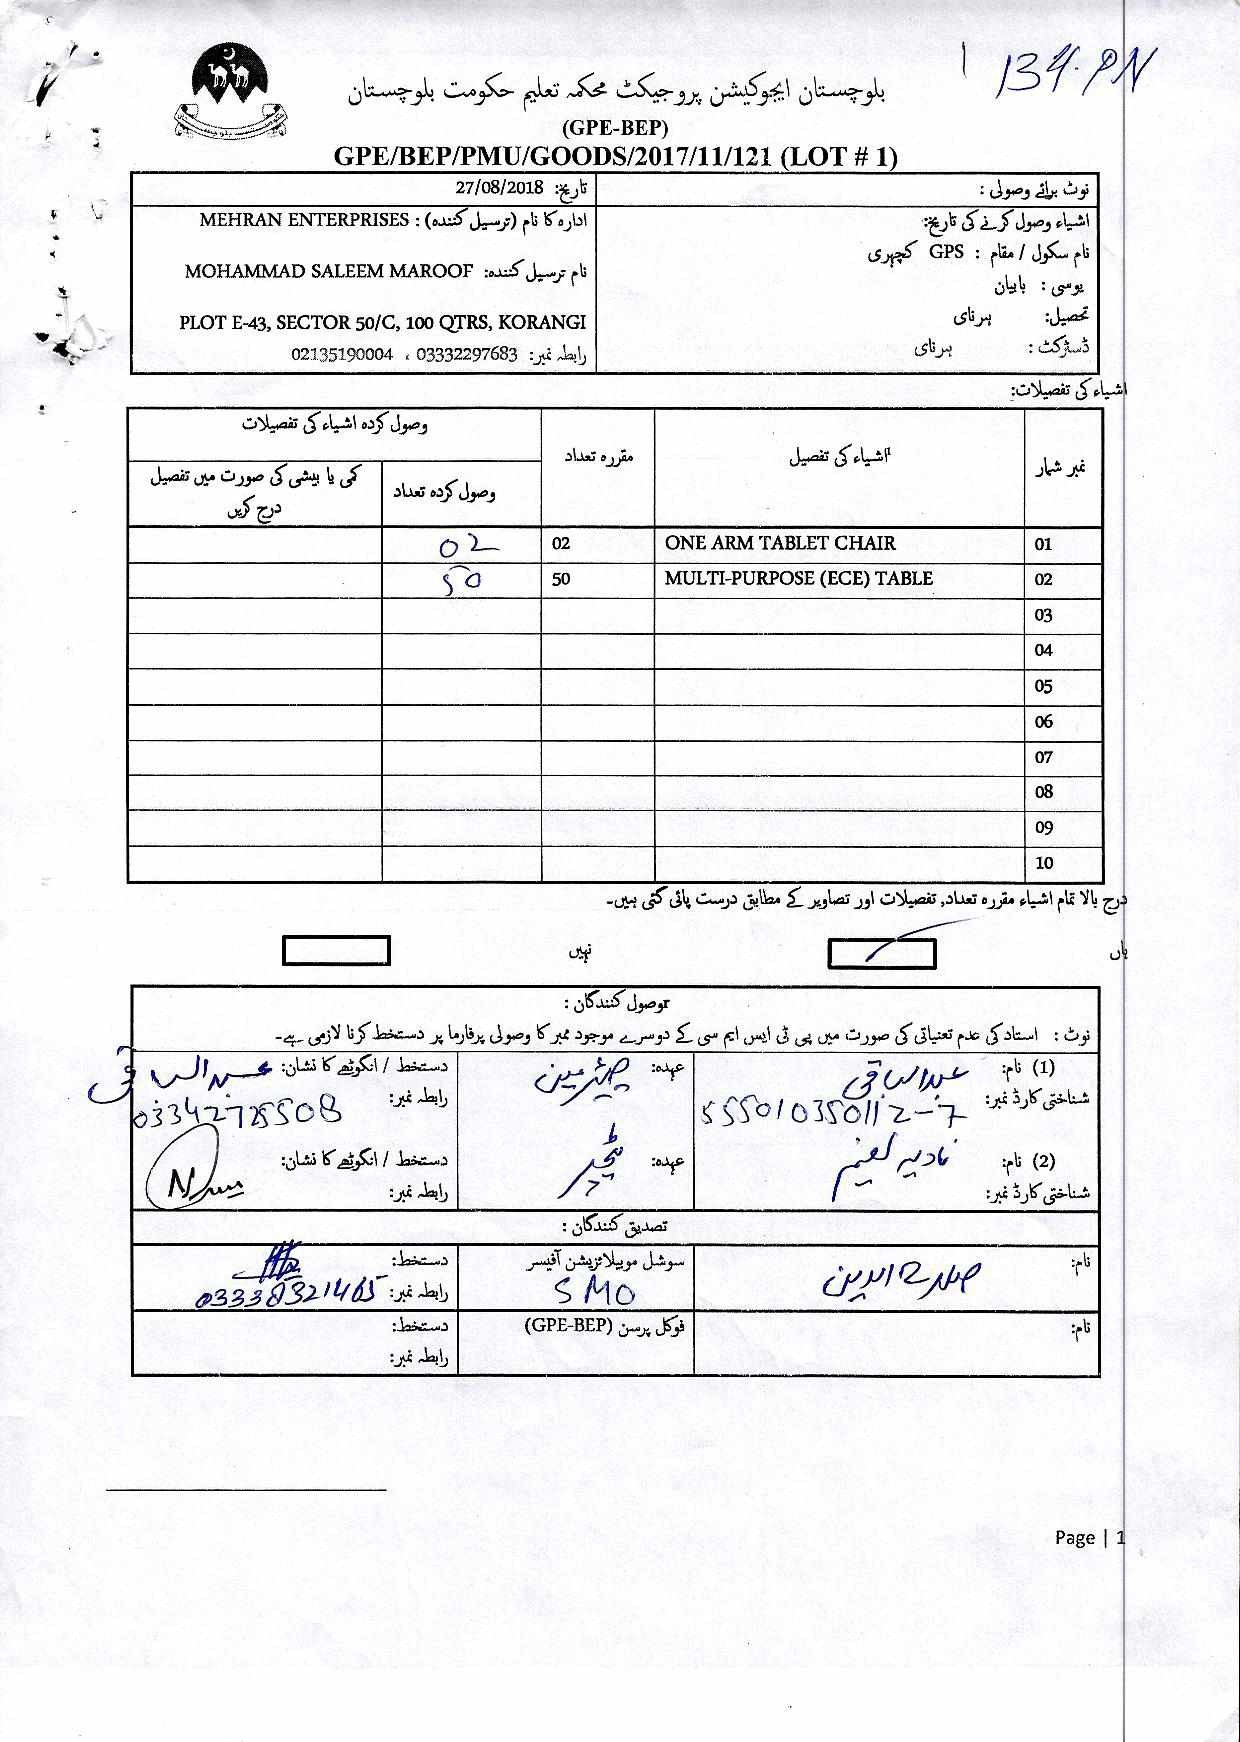 134-PN
بلوچستان ایجوکیشن پروجیکٹ محکمہ تعلیم حکومت بلوچستان
(GPE-BEP)
GPE/BEP/PMU/GOODS/2017/11/121 (LOT # 1)
نوٹ برائے وصولی :
تاریخ: 27/08/2018
اشیاء وصول کرنے کی تاریخ:
ادارہ کا نام (ترسیل کنندہ) : MEHRAN ENTERPRISES
نام سکول / مقام : GPS کچہری
نام ترسیل کنندہ: MOHAMMAD SALEEM MAROOF
یوسی : بابیان
تحصیل: ہرنای
PLOT E-43, SECTOR 50/C, 100 QTRS, KORANGI
ڈسٹرکٹ : ہرنای
رابطہ نمبر: 03332297683 ، 02135190004
اشیاء کی تفصیلات:
نمبر شمار اشیاء کی تفصیل مقررہ تعداد وصول کردہ اشیاء کی تفصیلات
وصول کردہ تعداد کمی یا بیشی کی صورت میں تفصیل درج کریں
01 ONE ARM TABLET CHAIR 02 02
02 MULTI-PURPOSE (ECE) TABLE 50 50
03
04
05
06
07
08
09
10
درج بالا تمام اشیاء مقررہ تعداد, تفصیلات اور تصاویر کے مطابق درست پائی گئی ہیں۔
ہاں نہیں
وصول کنندگان :
نوٹ : استاد کی عدم تعیناتی کی صورت میں پی ٹی ایس ایم سی کے دوسرے موجود ممبر کا وصولی پرفارما پر دستخط کرنا لازمی ہے۔
(1) نام: عبدالباقی عہدہ: چیئرمین دستخط / انگوٹھے کا نشان: عبدالباقی
شناختی کارڈ نمبر: 555010350112-7 رابطہ نمبر: 03342725508
(2) نام: نادیہ نعیم عہدہ: ٹیچر دستخط / انگوٹھے کا نشان:
شناختی کارڈ نمبر: رابطہ نمبر:
تصدیق کنندگان :
نام: صلاح الدین سوشل موبیلائزیشن آفیسر دستخط:
SMO رابطہ نمبر: 03338321465
نام: فوکل پرسن (GPE-BEP) دستخط:
رابطہ نمبر:
Page | 1